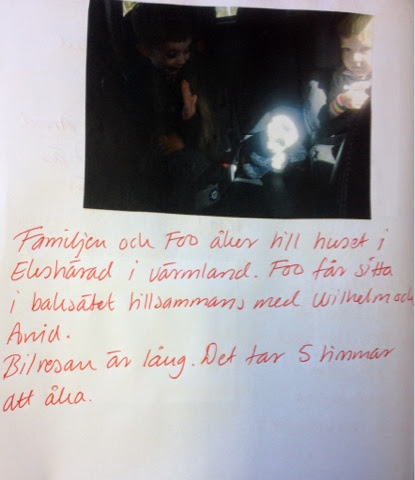 Familjen och Foo åker till huset i
Ekshärad i värmland. Foo får sitta
i baksätet tillsammans med Wilhelm och
Arvid.
Bilresan är lång. Det tar 5 timmar
att åka.